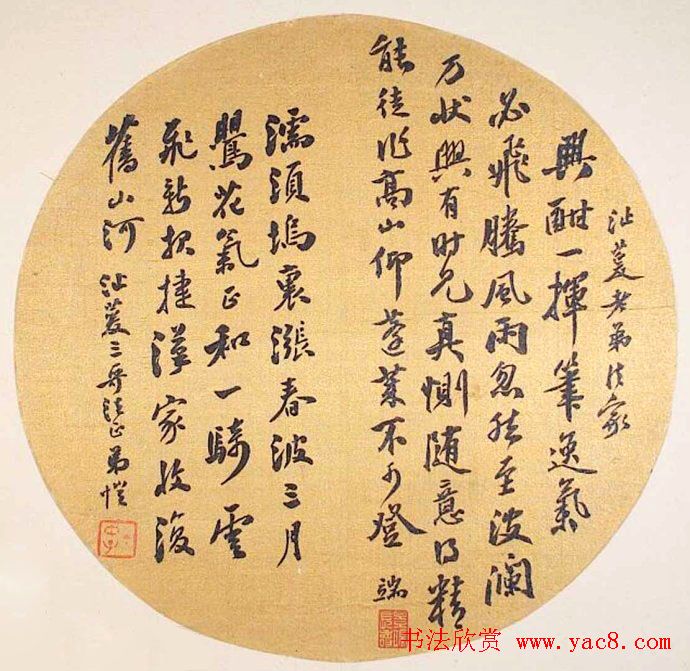 沚菱老弟法家
興酣一揮筆逸氣
必飛騰風雨忽然至波瀾
万狀興有时兄真惻随意得精
能徒作高山仰蓬萊不可登 端
濡須塢裏漲春波三月
鶯花氣正和一騎雲
飛新報捷漢家收復
舊山河 沚菱三哥法正弟愷
书法欣赏 www.yac8.com